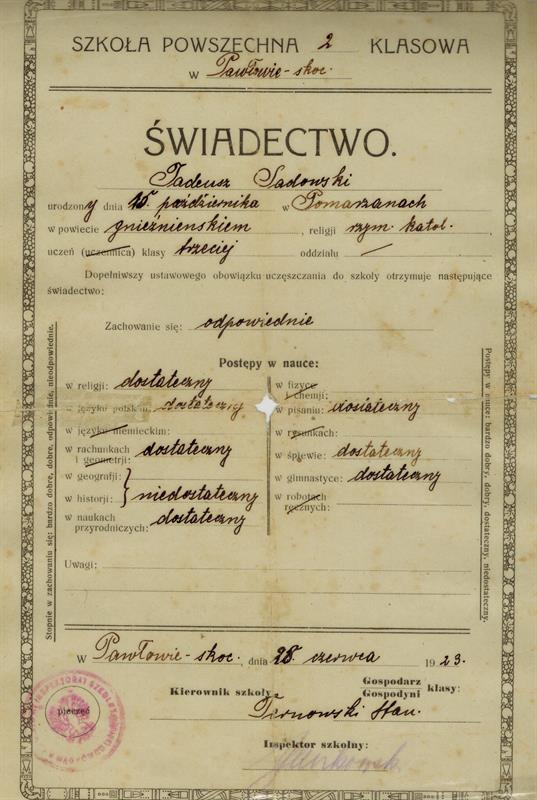 SZKOŁA POWSZECHNA 2 KLASOWA
w Pawłowie-skoc.
ŚWIADECTWO.
Tadeusz Sadowski
urodzony dnia 15 października w Pomarzanach
w powiecie gnieźnienskiem, religji rzym. katol.
uczeń (uczennica) klasy trzeciej oddziału —
Dopełniwszy ustawowego obowiązku uczęszczania do szkoły otrzymuje następujące
świadectwo:
Zachowanie się: odpowiednie
Postępy w nauce:
w religji: dostateczny
w języku polskim: dostateczny
w języku niemieckim:
w rachunkach i geometrji: dostateczny
w geografji:
w historji: niedostateczny
w naukach przyrodniczych: dostateczny
w fizyce i chemji:
w pisaniu: dostateczny
w rysunkach:
w śpiewie: dostateczny
w gimnastyce: dostateczny
w robotach ręcznych:
Stopnie w zachowaniu się: bardzo dobre, dobre, odpowiednie, nieodpowiednie.
Postępy w nauce: bardzo dobry, dobry, dostateczny, niedostateczny.
Uwagi:
W Pawłowie-skoc., dnia 28. czerwca 1923.
Kierownik szkoły
Gospodarz
Gospodyni klasy:
pieczęć
Inspektor szkolny: